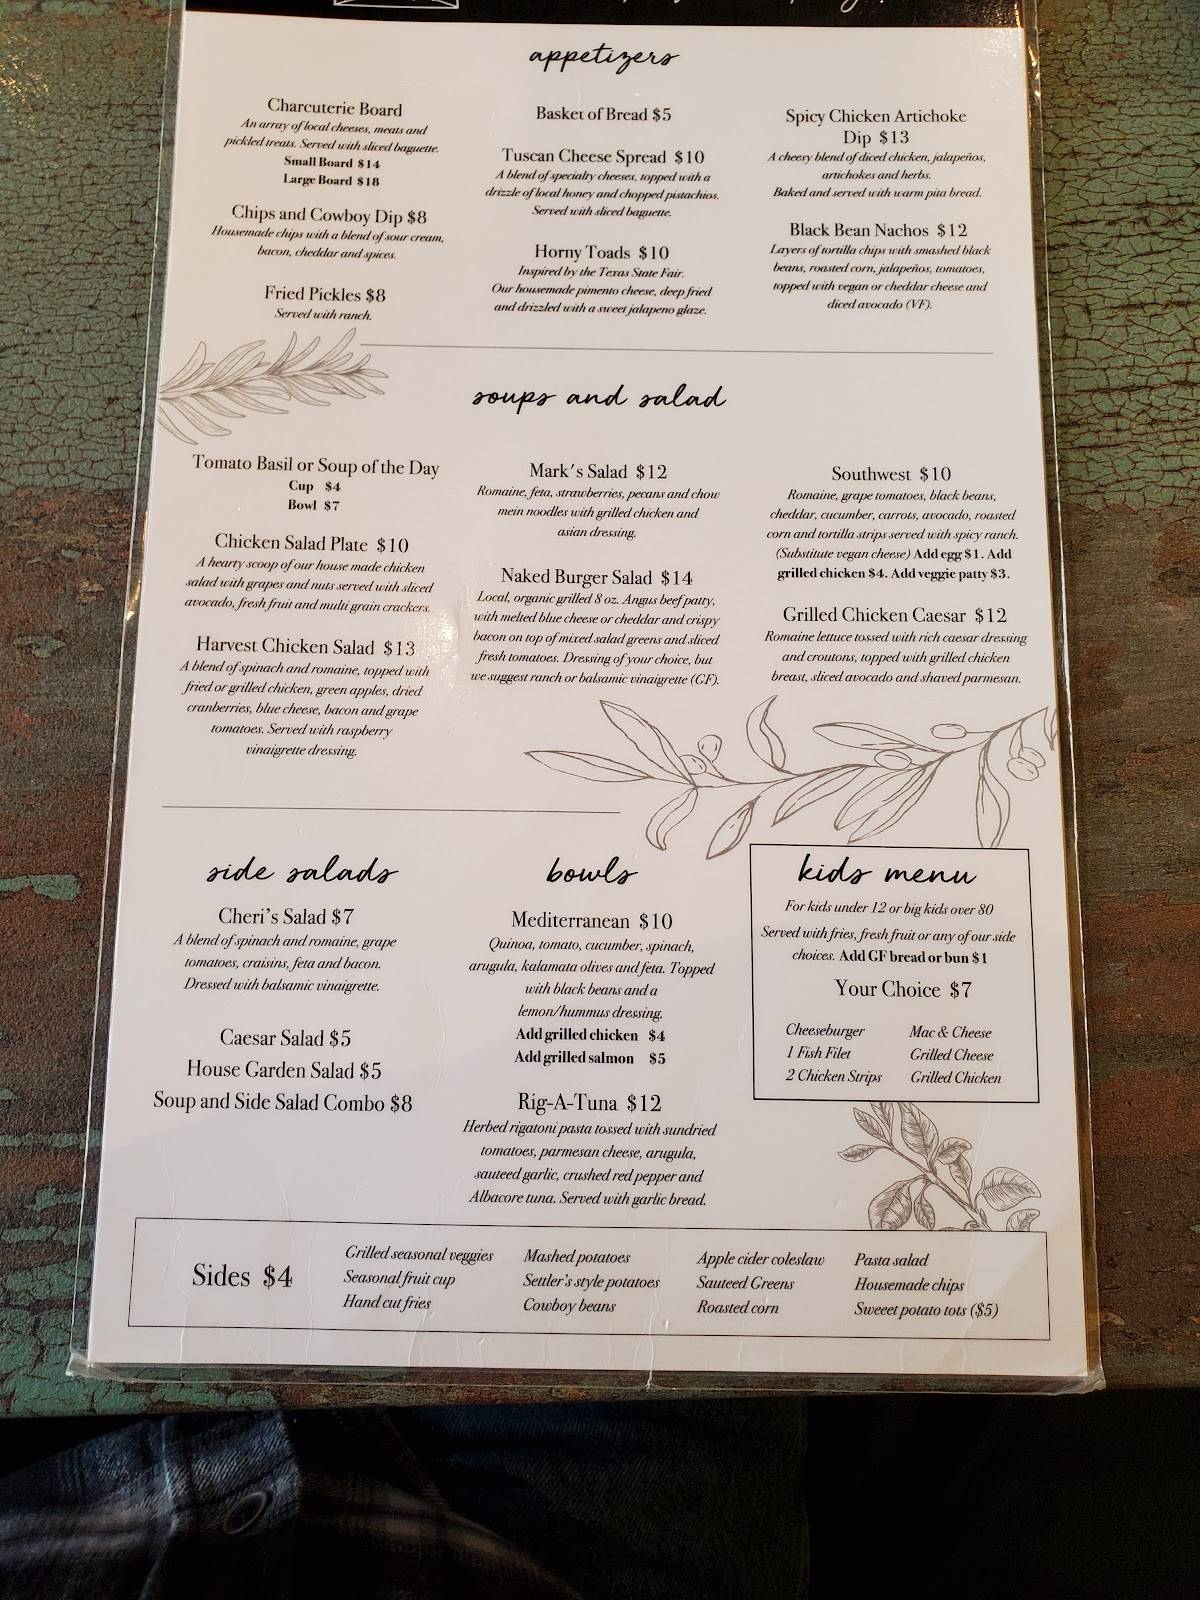 appetizers
Charcuterie Board
An array of local cheeses, meats and
pickled treats. Served with sliced baguette.
Small Board $14
Large Board $18
Chips and Cowboy Dip $8
Housemade chips with a blend of sour cream,
bacon, cheddar and spices.
Fried Pickles $8
Served with ranch.
Basket of Bread $5
Tuscan Cheese Spread $10
A blend of specialty cheeses, topped with a
drizzle of local honey and chopped pistachios.
Served with sliced baguette.
Horny Toads $10
Inspired by the Texas State Fair.
Our housemade pimento cheese, deep fried
and drizzled with a sweet jalapeno glaze.
Spicy Chicken Artichoke
Dip $13
A cheesy blend of diced chicken, jalapeños,
artichokes and herbs.
Baked and served with warm pita bread.
Black Bean Nachos $12
Layers of tortilla chips with smashed black
beans, roasted corn, jalapeños, tomatoes,
topped with vegan or cheddar cheese and
diced avocado (VF).
soups and salad
Tomato Basil or Soup of the Day
Cup $4
Bowl $7
Chicken Salad Plate $10
A hearty scoop of our house made chicken
salad with grapes and nuts served with sliced
avocado, fresh fruit and multi grain crackers.
Harvest Chicken Salad $13
A blend of spinach and romaine, topped with
fried or grilled chicken, green apples, dried
cranberries, blue cheese, bacon and grape
tomatoes. Served with raspberry
vinaigrette dressing.
Mark's Salad $12
Romaine, feta, strawberries, pecans and chow
mein noodles with grilled chicken and
asian dressing.
Naked Burger Salad $14
Local, organic grilled 8 oz. Angus beef patty,
with melted blue cheese or cheddar and crispy
bacon on top of mixed salad greens and sliced
fresh tomatoes. Dressing of your choice, but
we suggest ranch or balsamic vinaigrette (GF).
Southwest $10
Romaine, grape tomatoes, black beans,
cheddar, cucumber, carrots, avocado, roasted
corn and tortilla strips served with spicy ranch.
(Substitute vegan cheese) Add egg $1. Add
grilled chicken $4. Add veggie patty $3.
Grilled Chicken Caesar $12
Romaine lettuce tossed with rich caesar dressing
and croutons, topped with grilled chicken
breast, sliced avocado and shaved parmesan.
side salads
Cheri's Salad $7
A blend of spinach and romaine, grape
tomatoes, craisins, feta and bacon.
Dressed with balsamic vinaigrette.
Caesar Salad $5
House Garden Salad $5
Soup and Side Salad Combo $8
bowls
Mediterranean $10
Quinoa, tomato, cucumber, spinach,
arugula, kalamata olives and feta. Topped
with black beans and a
lemon/hummus dressing.
Add grilled chicken $4
Add grilled salmon $5
Rig-A-Tuna $12
Herbed rigatoni pasta tossed with sundried
tomatoes, parmesan cheese, arugula,
sauteed garlic, crushed red pepper and
Albacore tuna. Served with garlic bread.
kids menu
For kids under 12 or big kids over 80
Served with fries, fresh fruit or any of our side
choices. Add GF bread or bun $1
Your Choice $7
Cheeseburger Mac & Cheese
1 Fish Filet Grilled Cheese
2 Chicken Strips Grilled Chicken
Sides $4
Grilled seasonal veggies Mashed potatoes Apple cider coleslaw Pasta salad
Seasonal fruit cup Settler's style potatoes Sauteed Greens Housemade chips
Hand cut fries Cowboy beans Roasted corn Sweeet potato tots ($5)